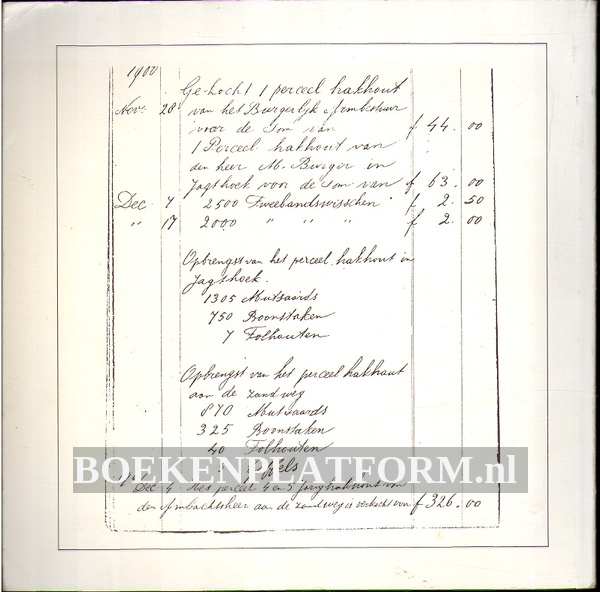 1900
Gekocht 1 perceel hakhout
Nov. 28 van het Burgerlyk Armbestuur
voor de Som van f 44.00
1 Perceel hakhout van
den heer M. Burger in
Jagthoek voor de som van f 63.00
Dec 7 2500 Tweebandswisschen f 2.50
" 17 2000 " " " f 2.00
Opbrengst van het perceel hakhout in
Jagthoek.
1305 Mutsaards
750 Boonstaken
7 Folhouten
Opbrengst van het perceel hakhout
aan de zandweg
870 Mutsaards
325 Boonstaken
40 Folhouten
BOEKENPLATFORM.nl
Dec 4 het perceel 4 en 5 hakhout van
den Ambachtsheer aan de zandweg is verkocht voor f 326.00